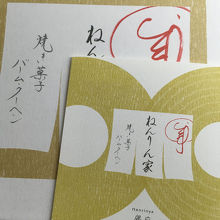 ねん
焼き菓子
バームクーヘン
ねんりん家
焼き菓子
バームクーヘン
Nenrinya